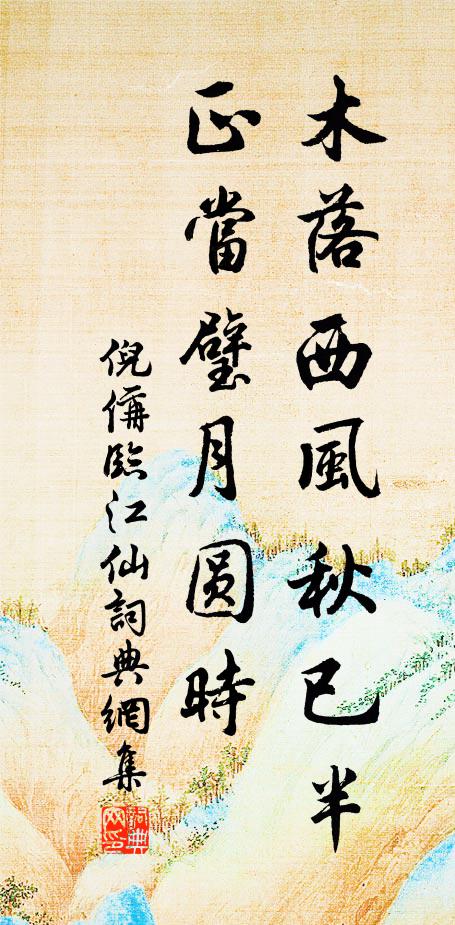 木落西風秋已半
正當璧月圓時
倪偁臨江仙詞典網集
詞典网印